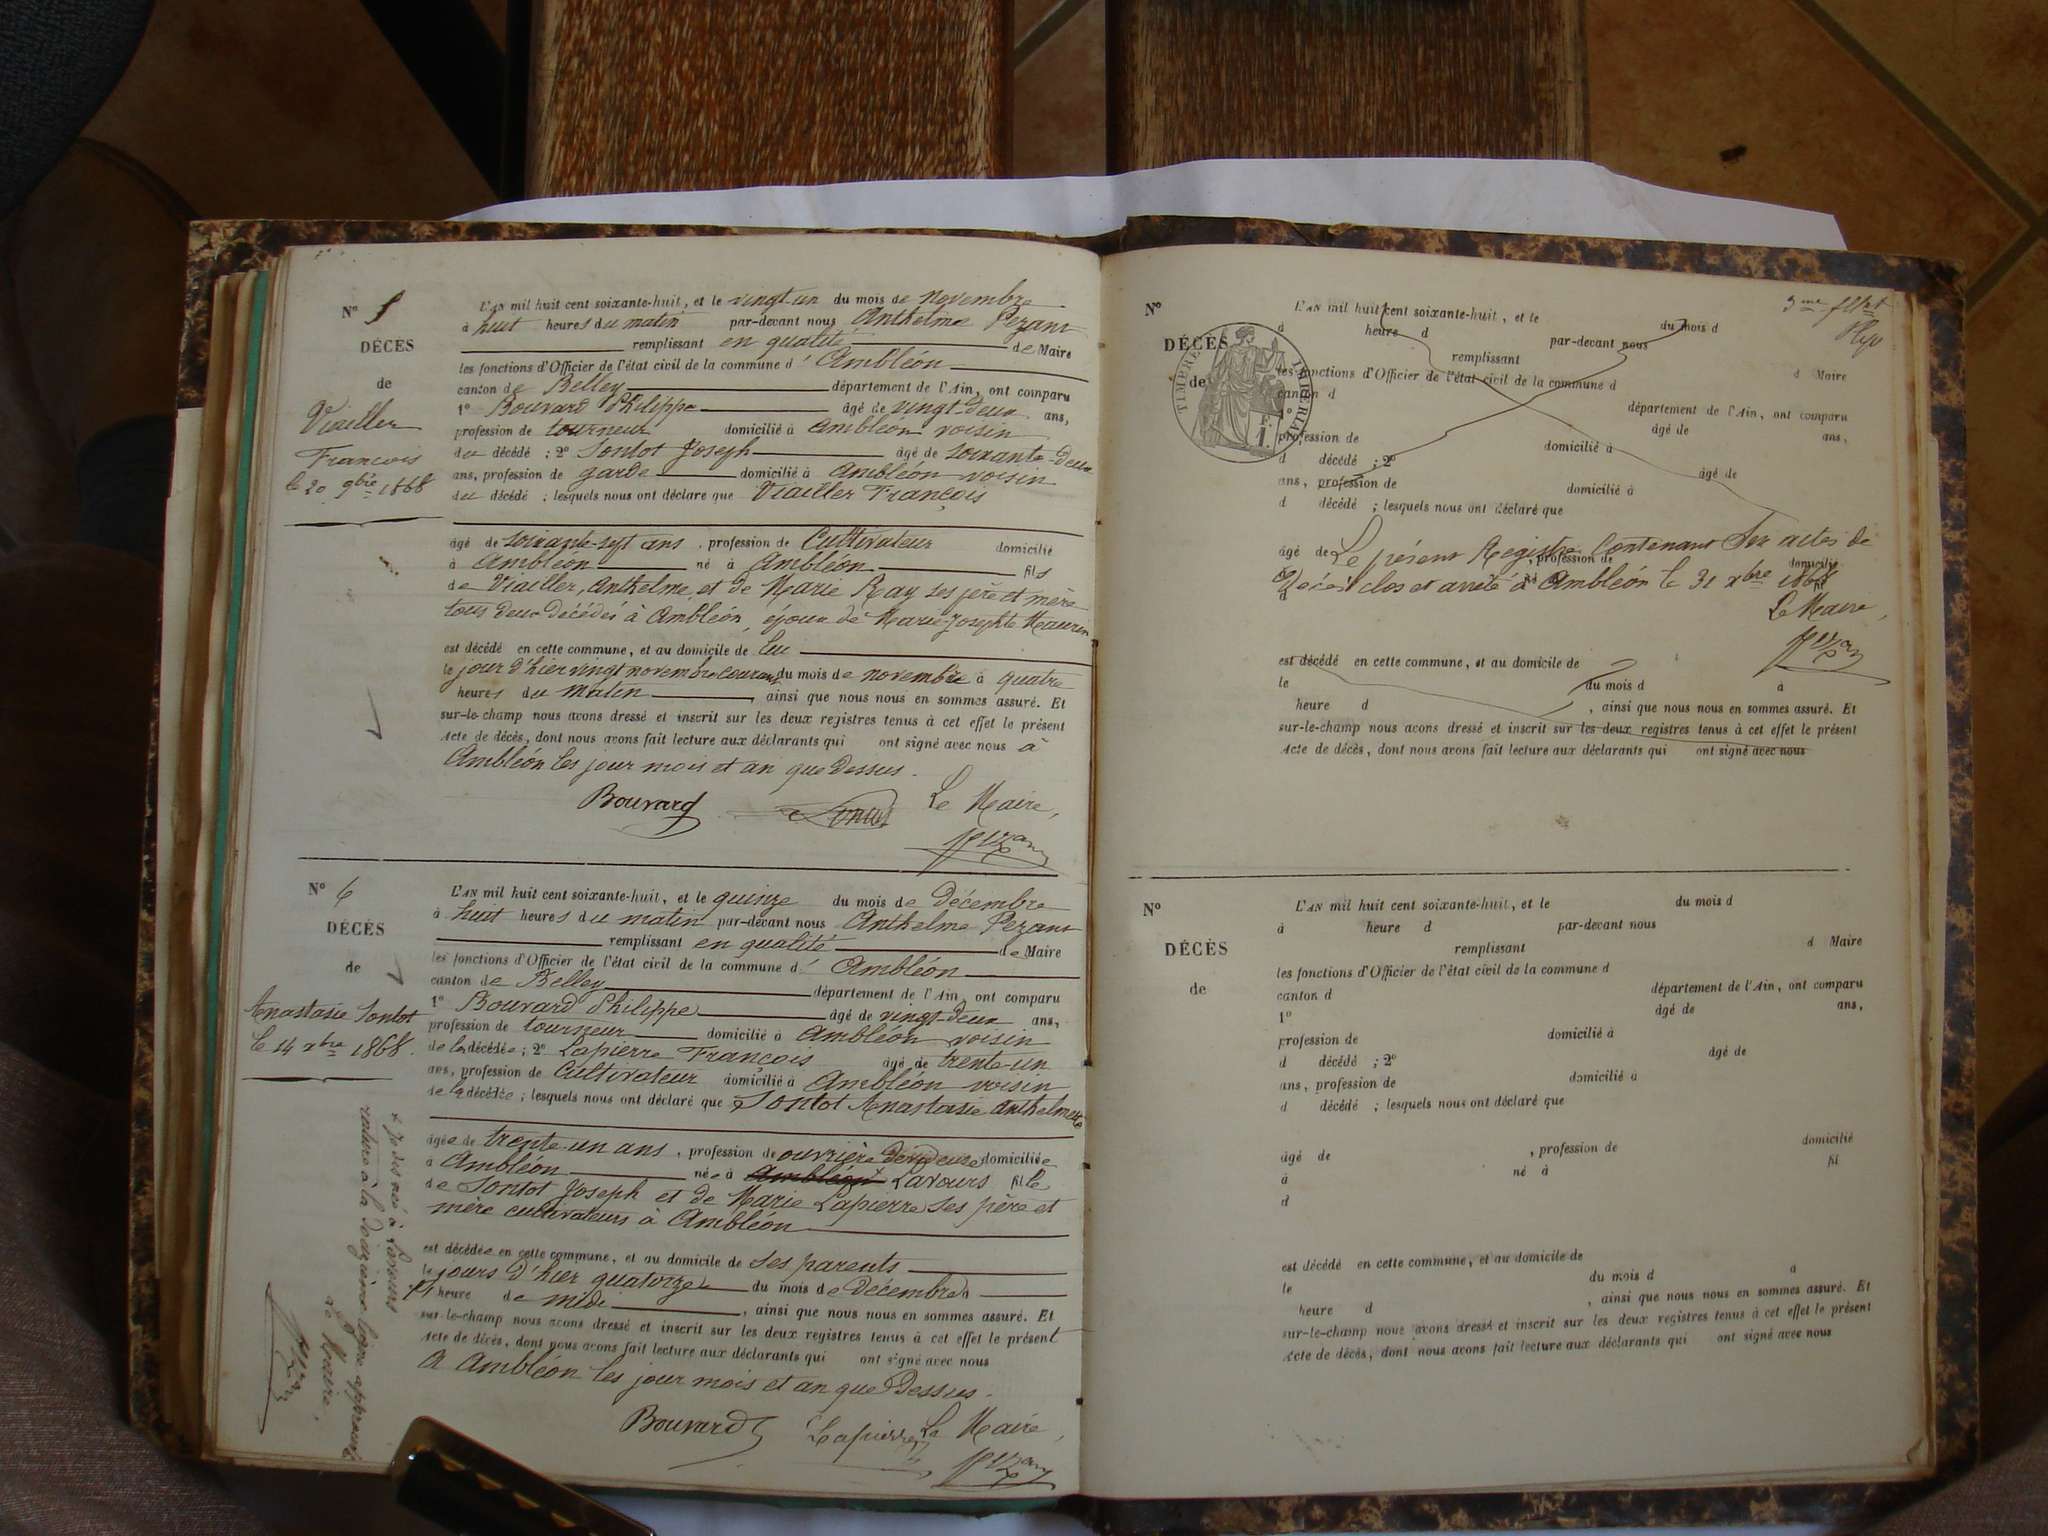 N° 5
DÉCÈS
de
Viailler
François
le 20 9bre 1868
L'AN mil huit cent soixante-huit, et le vingt-un du mois de Novembre
à huit heures du matin par-devant nous Anthelme Pezant
remplissant en qualité de Maire
les fonctions d'Officier de l'état civil de la commune d' Ambléon
canton de Belley département de l'Ain, ont comparu
1° Bouvard Philippe âgé de vingt-deux ans,
profession de tourneur domicilié à Ambléon voisin
du décédé ; 2° Sontot Joseph âgé de soixante-deux
ans, profession de garde domicilié à Ambléon voisin
du décédé ; lesquels nous ont déclaré que Viailler François
âgé de soixante-sept ans, profession de Cultivateur domicilié
à Ambléon né à Ambléon fils
de Viailler, Anthelme et de Marie Ray ses père et mère
tous deux décédés à Ambléon, époux de Marie-Josephte Maurin
est décédé en cette commune, et au domicile de lui
le jour d'hier vingt novembre courant du mois de novembre à quatre
heures du matin ainsi que nous nous en sommes assuré. Et
sur-le-champ nous avons dressé et inscrit sur les deux registres tenus à cet effet le présent
Acte de décès, dont nous avons fait lecture aux déclarants qui ont signé avec nous à
Ambléon les jour mois et an que Dessus.
Bouvard Sontot Le Maire,
Pezant
N° 6
DÉCÈS
de
Anastasie Sontot
le 14 xbre 1868.
L'AN mil huit cent soixante-huit, et le quinze du mois de Décembre
à huit heures du matin par-devant nous Anthelme Pezant
remplissant en qualité de Maire
les fonctions d'Officier de l'état civil de la commune d' Ambléon
canton de Belley département de l'Ain, ont comparu
1° Bouvard Philippe âgé de vingt-deux ans,
profession de tourneur domicilié à Ambléon voisin
de la décédée ; 2° Lapierre François âgé de trente-un
ans, profession de Cultivateur domicilié à Ambléon voisin
de la décédée ; lesquels nous ont déclaré que Sontot Anastasie Anthelmette
âgée de trente-un ans, profession de ouvrière domiciliée
à Ambléon née à Ambléon Lavours fille
de Sontot Joseph et de Marie Lapierre ses père et
mère cultivateurs à Ambléon
est décédée en cette commune, et au domicile de ses parents
le jours d'hier quatorze du mois de Décembre à
heure de midi, ainsi que nous nous en sommes assuré. Et
sur-le-champ nous avons dressé et inscrit sur les deux registres tenus à cet effet le présent
Acte de décès, dont nous avons fait lecture aux déclarants qui ont signé avec nous
A Ambléon les jour mois et an que Dessus.
Bouvard Lapierre Le Maire,
Pezant
née à Lavours
rature à la ligne approuvée
Le Maire,
Pezant
N°
DÉCÈS
de
TIMBRE IMPÉRIAL
F. 1.
L'AN mil huit cent soixante-huit, et le du mois d
à heure d par-devant nous
remplissant d Maire
les fonctions d'Officier de l'état civil de la commune d
canton d département de l'Ain, ont comparu
âgé de ans,
profession de domicilié à
d décédé ; 2° âgé de
ans, profession de domicilié à
d décédé ; lesquels nous ont déclaré que
Le présent Registre Contenant Six actes de
âgé de , profession de domicilié
Décès clos et arrêté à Ambléon le 31 xbre 1868
né à fil
d
Le Maire,
Pezant
est décédé en cette commune, et au domicile de
le du mois d à
heure d , ainsi que nous nous en sommes assuré. Et
sur-le-champ nous avons dressé et inscrit sur les deux registres tenus à cet effet le présent
Acte de décès, dont nous avons fait lecture aux déclarants qui ont signé avec nous
N°
DÉCÈS
de
L'AN mil huit cent soixante-huit, et le du mois d
à heure d par-devant nous
remplissant d Maire
les fonctions d'Officier de l'état civil de la commune d
canton d département de l'Ain, ont comparu
1° âgé de ans,
profession de domicilié à
d décédé ; 2° âgé de
ans, profession de domicilié à
d décédé ; lesquels nous ont déclaré que
âgé de , profession de domicilié
à né à fil
d
est décédé en cette commune, et au domicile de
le du mois d à
heure d , ainsi que nous nous en sommes assuré. Et
sur-le-champ nous avons dressé et inscrit sur les deux registres tenus à cet effet le présent
Acte de décès, dont nous avons fait lecture aux déclarants qui ont signé avec nous